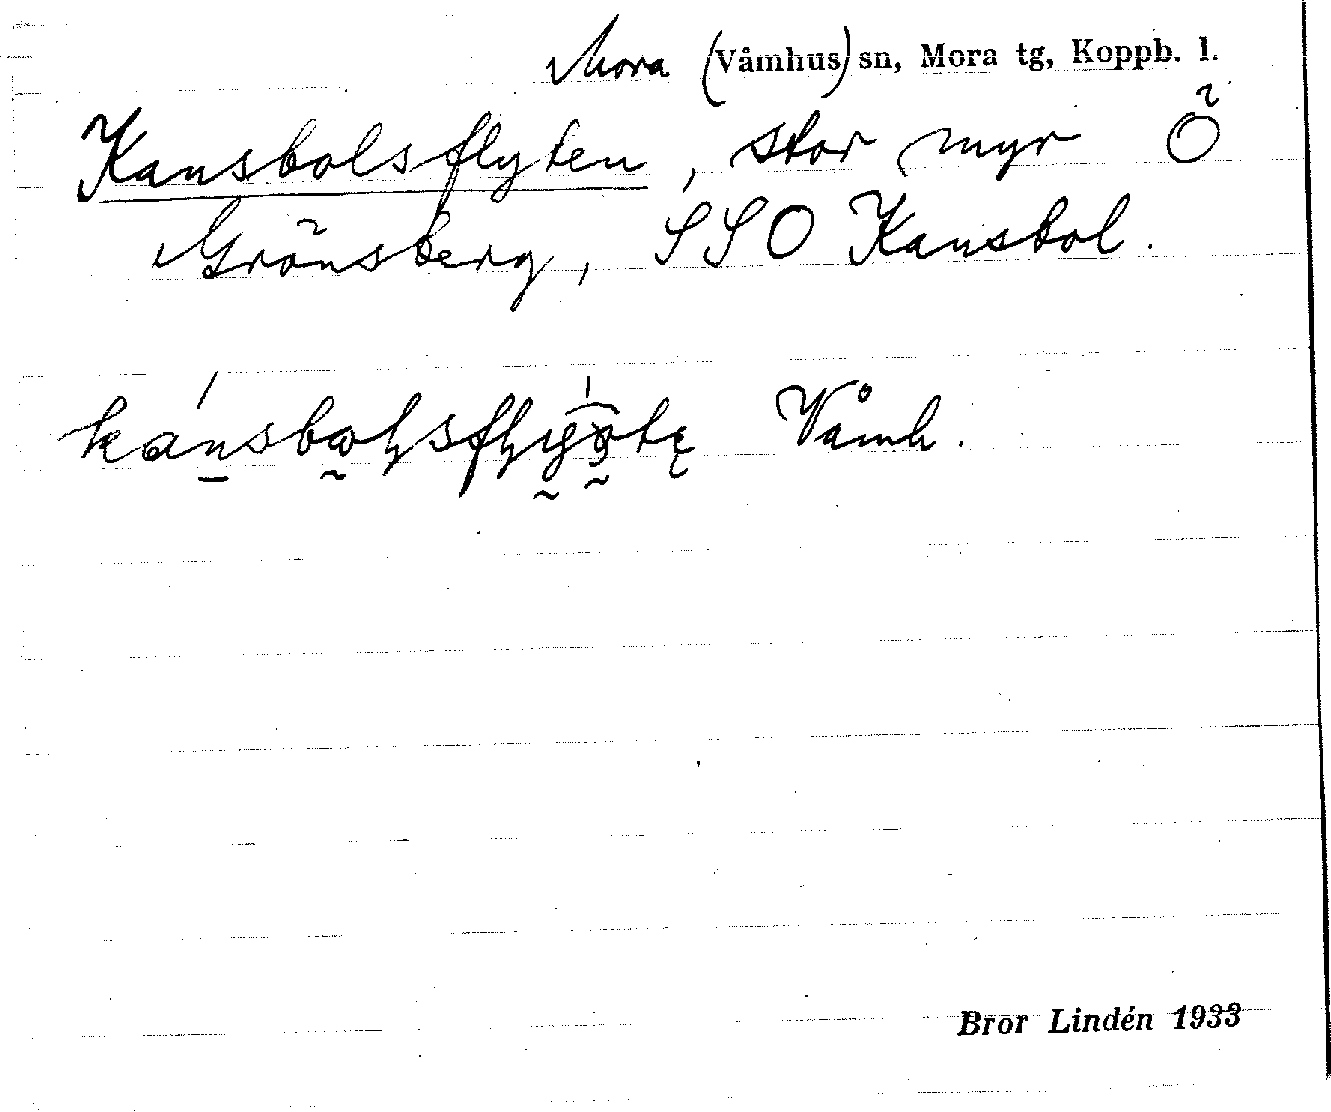 Mora (Våmhus) sn, Mora tg, Koppb. l.
Kansbolsflyten, stor myr Ö
Grönsberg, SSO Kansbol.
Våmh.
Bror Lindén 1933